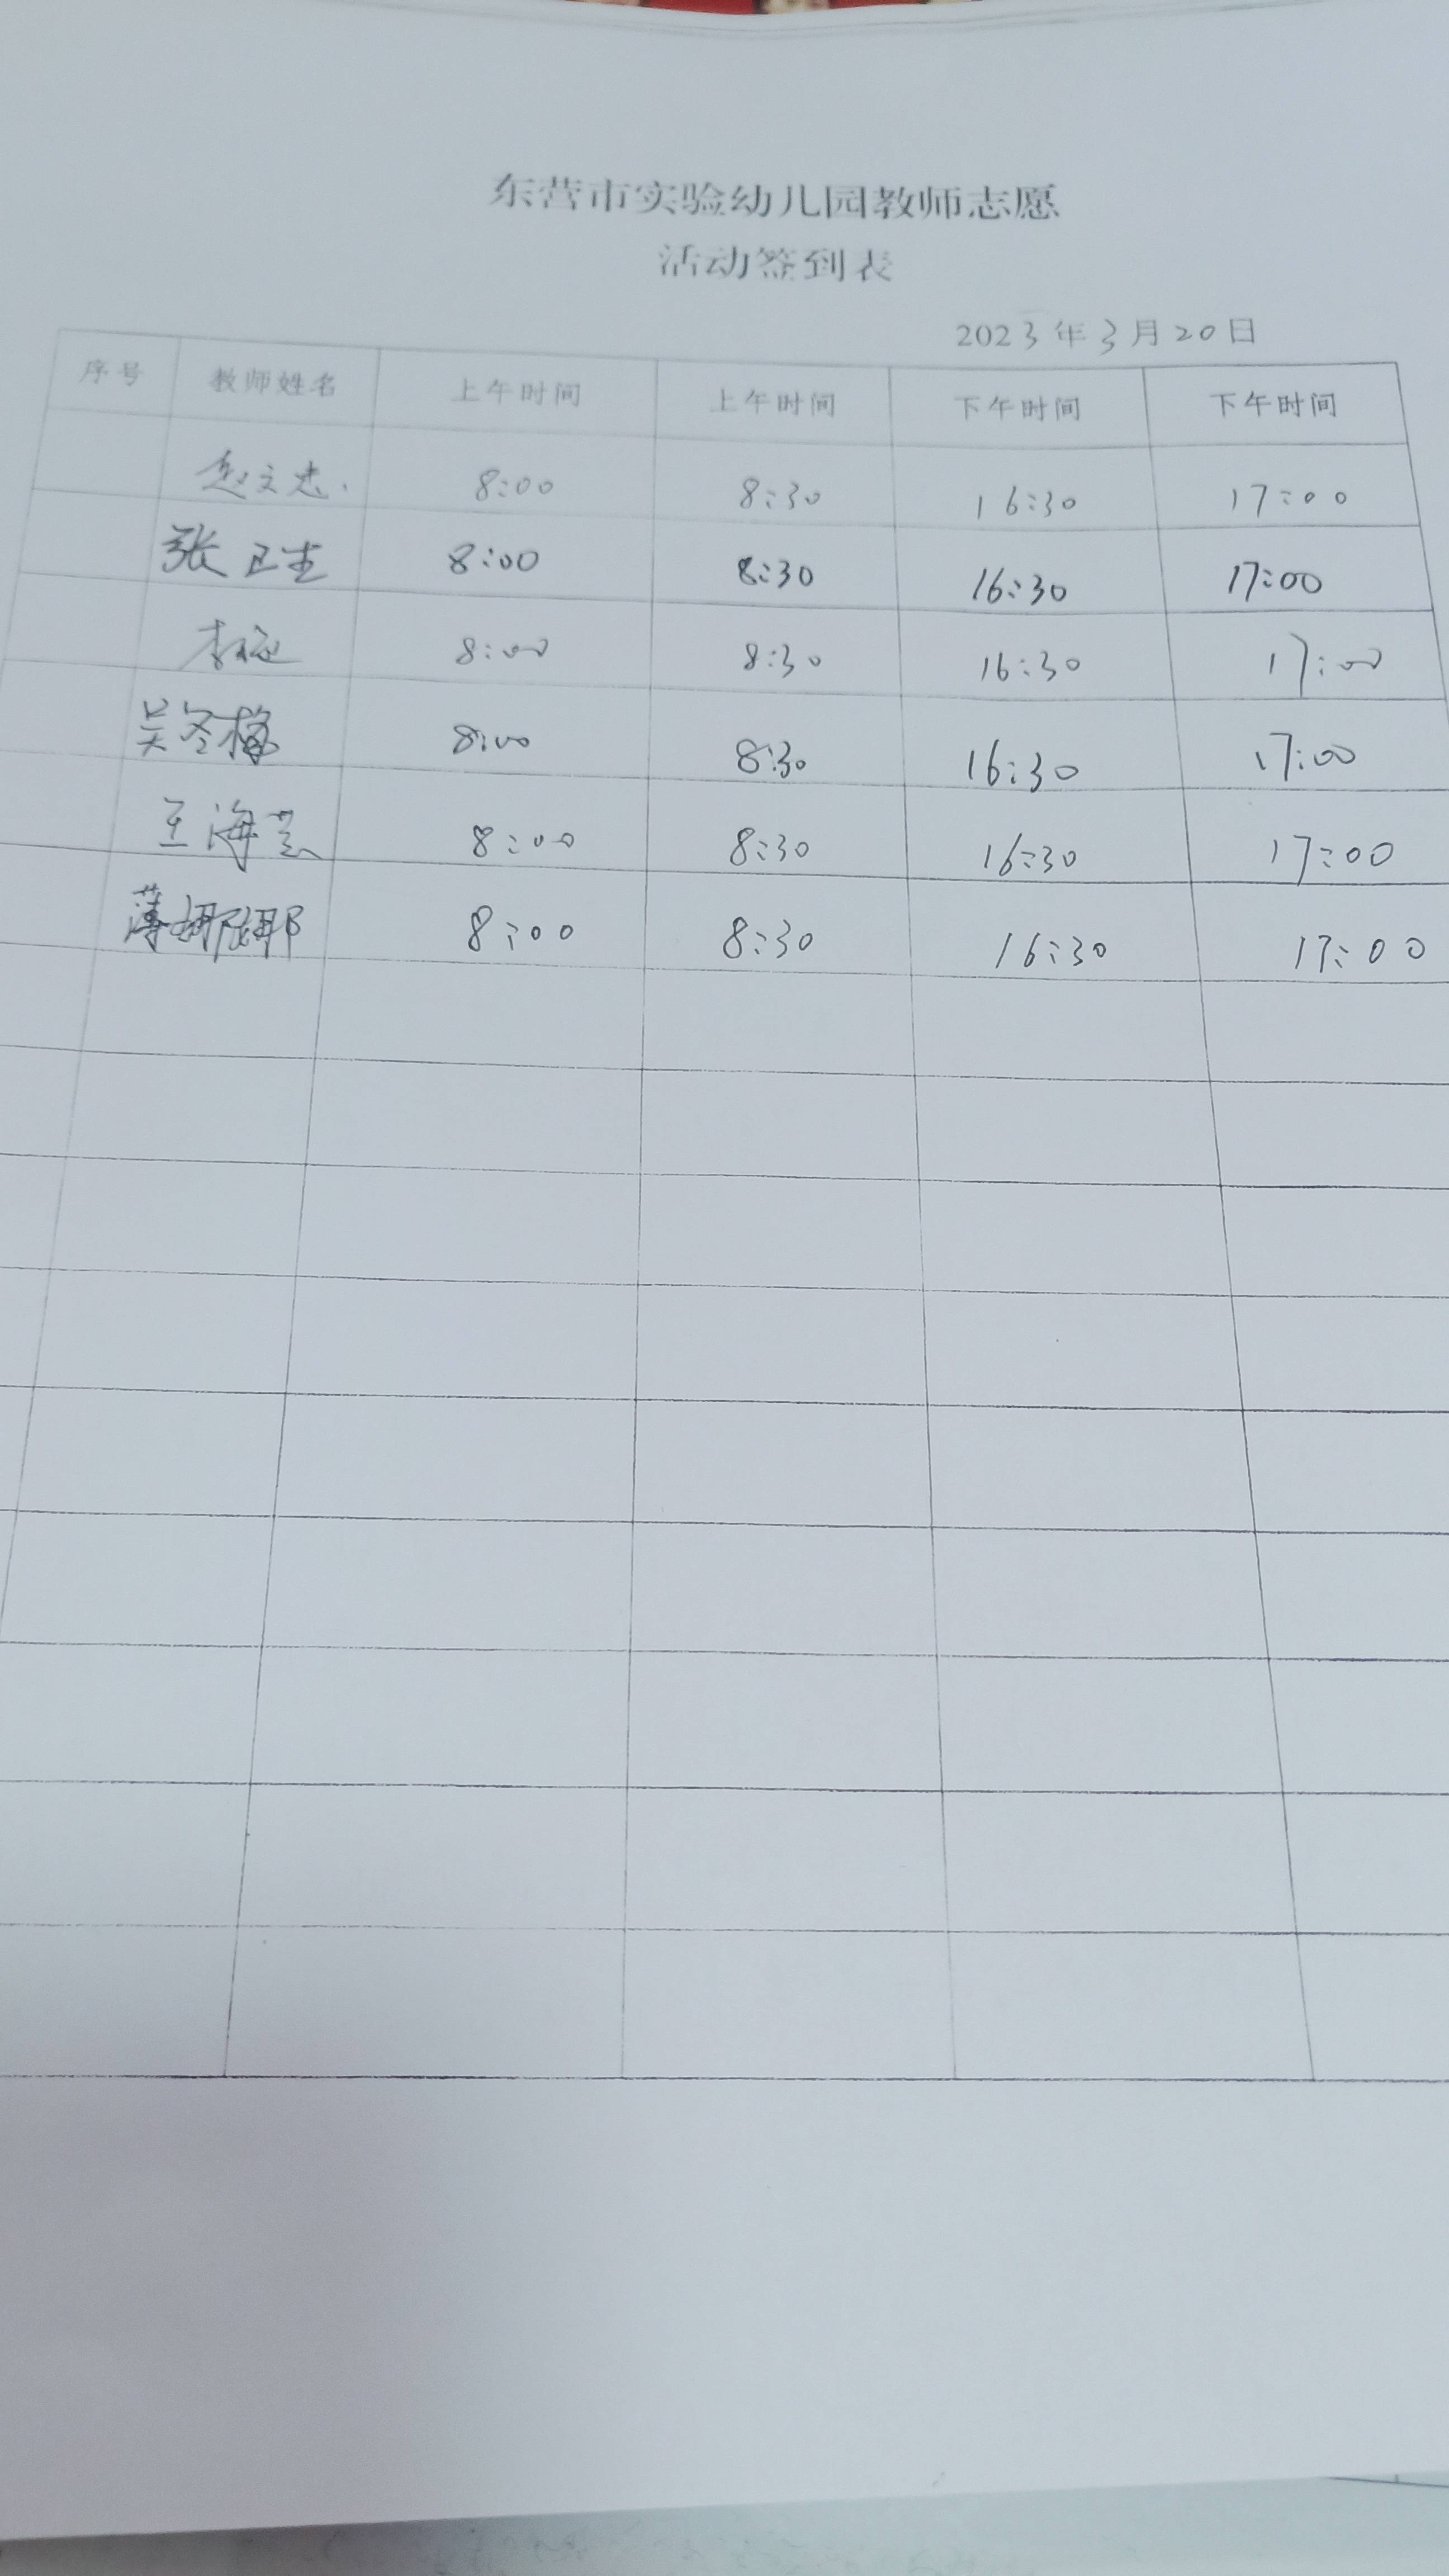 东营市实验幼儿园教师志愿
活动签到表
2023年3月20日
序号 教师姓名 上午时间 上午时间 下午时间 下午时间
赵文忠 8:00 8:30 16:30 17:00
张卫生 8:00 8:30 16:30 17:00
李 8:00 8:30 16:30 17:00
吴冬梅 8:00 8:30 16:30 17:00
王海 8:00 8:30 16:30 17:00
薄娜娜 8:00 8:30 16:30 17:00